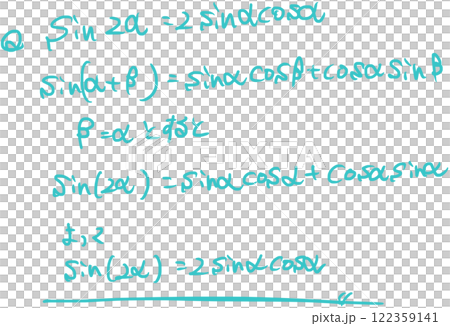 Q sin2α=2sinαcosα
sin(α+β)=sinαcosβ+cosαsinβ
β=αとすると
sin(2α)=sinαcosα+cosαsinα
よって
sin(2α)=2sinαcosα
PIXTA
pixta.jp - 122359141